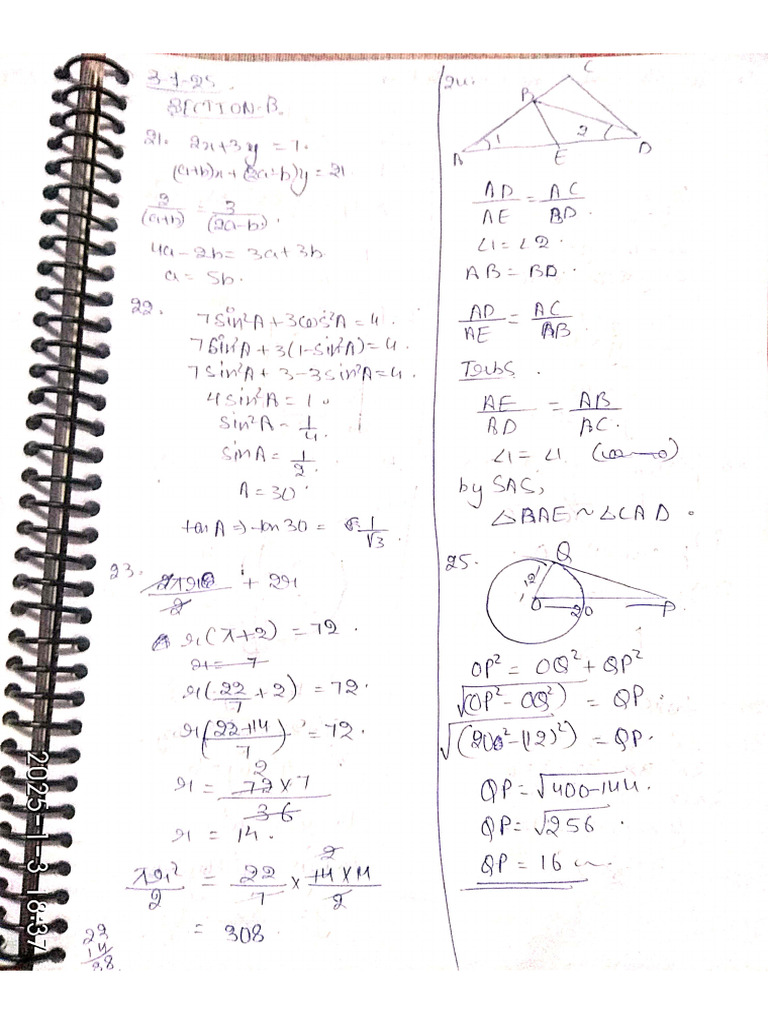 3-1-25.
SECTION-B.
21. 2x+3y = 7.
(a+b)x+(2a-b)y = 21
2/(a+b) = 3/(2a-b).
4a-2b = 3a+3b
a = 5b.
22.
7sin²A+3cos²A = 4.
7sin²A+3(1-sin²A) = 4.
7sin²A+3-3sin²A = 4.
4sin²A = 1.
sin²A = 1/4.
sinA = 1/2.
A = 30°
tanA => tan30 = 1/√3
23.
+ 2r
r(π+2) = 72.
r(22/7+2) = 72.
r(22+14/7) = 72.
2
r = 72×7/36
r = 14.
2
πr²/2 = 22/7 × 14×14/2
= 308.
22
14
28
24.
C
B
1
2
A
E
D
AD/AE = AC/BD.
∠1 = ∠2.
AB = BD.
AD/AE = AC/AB
AE/AD = AB/AC.
∠1 = ∠1
by SAS,
△BAE ~ △CAD.
25.
Q
12
O
20
P
OP² = OQ² + QP²
√(OP²-OQ²) = QP.
√(20²-(12)²) = QP.
QP = √400-144.
QP = √256.
QP = 16
2025-1-3 18:37